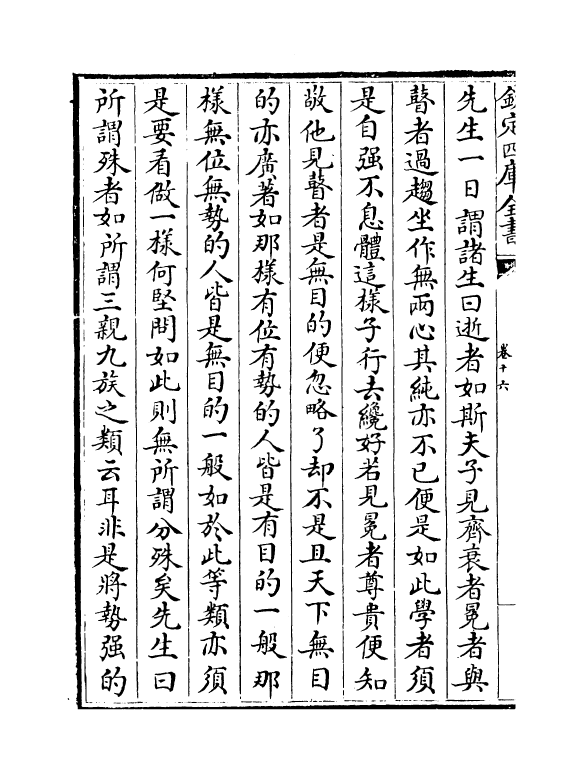 欽定四庫全書
卷十六
先生一日謂諸生曰逝者如斯夫子見齊衰者冕者與
瞽者過趨坐作無兩心其純亦不已便是如此學者須
是自强不息體這樣子行去纔好若見冕者尊貴便知
敬他見瞽者是無目的便忽略了却不是且天下無目
的亦廣著如那樣有位有勢的人皆是有目的一般那
樣無位無勢的人皆是無目的一般如於此等類亦須
是要看做一樣何堅問如此則無所謂分殊矣先生曰
所謂殊者如所謂三親九族之類云耳非是將勢强的